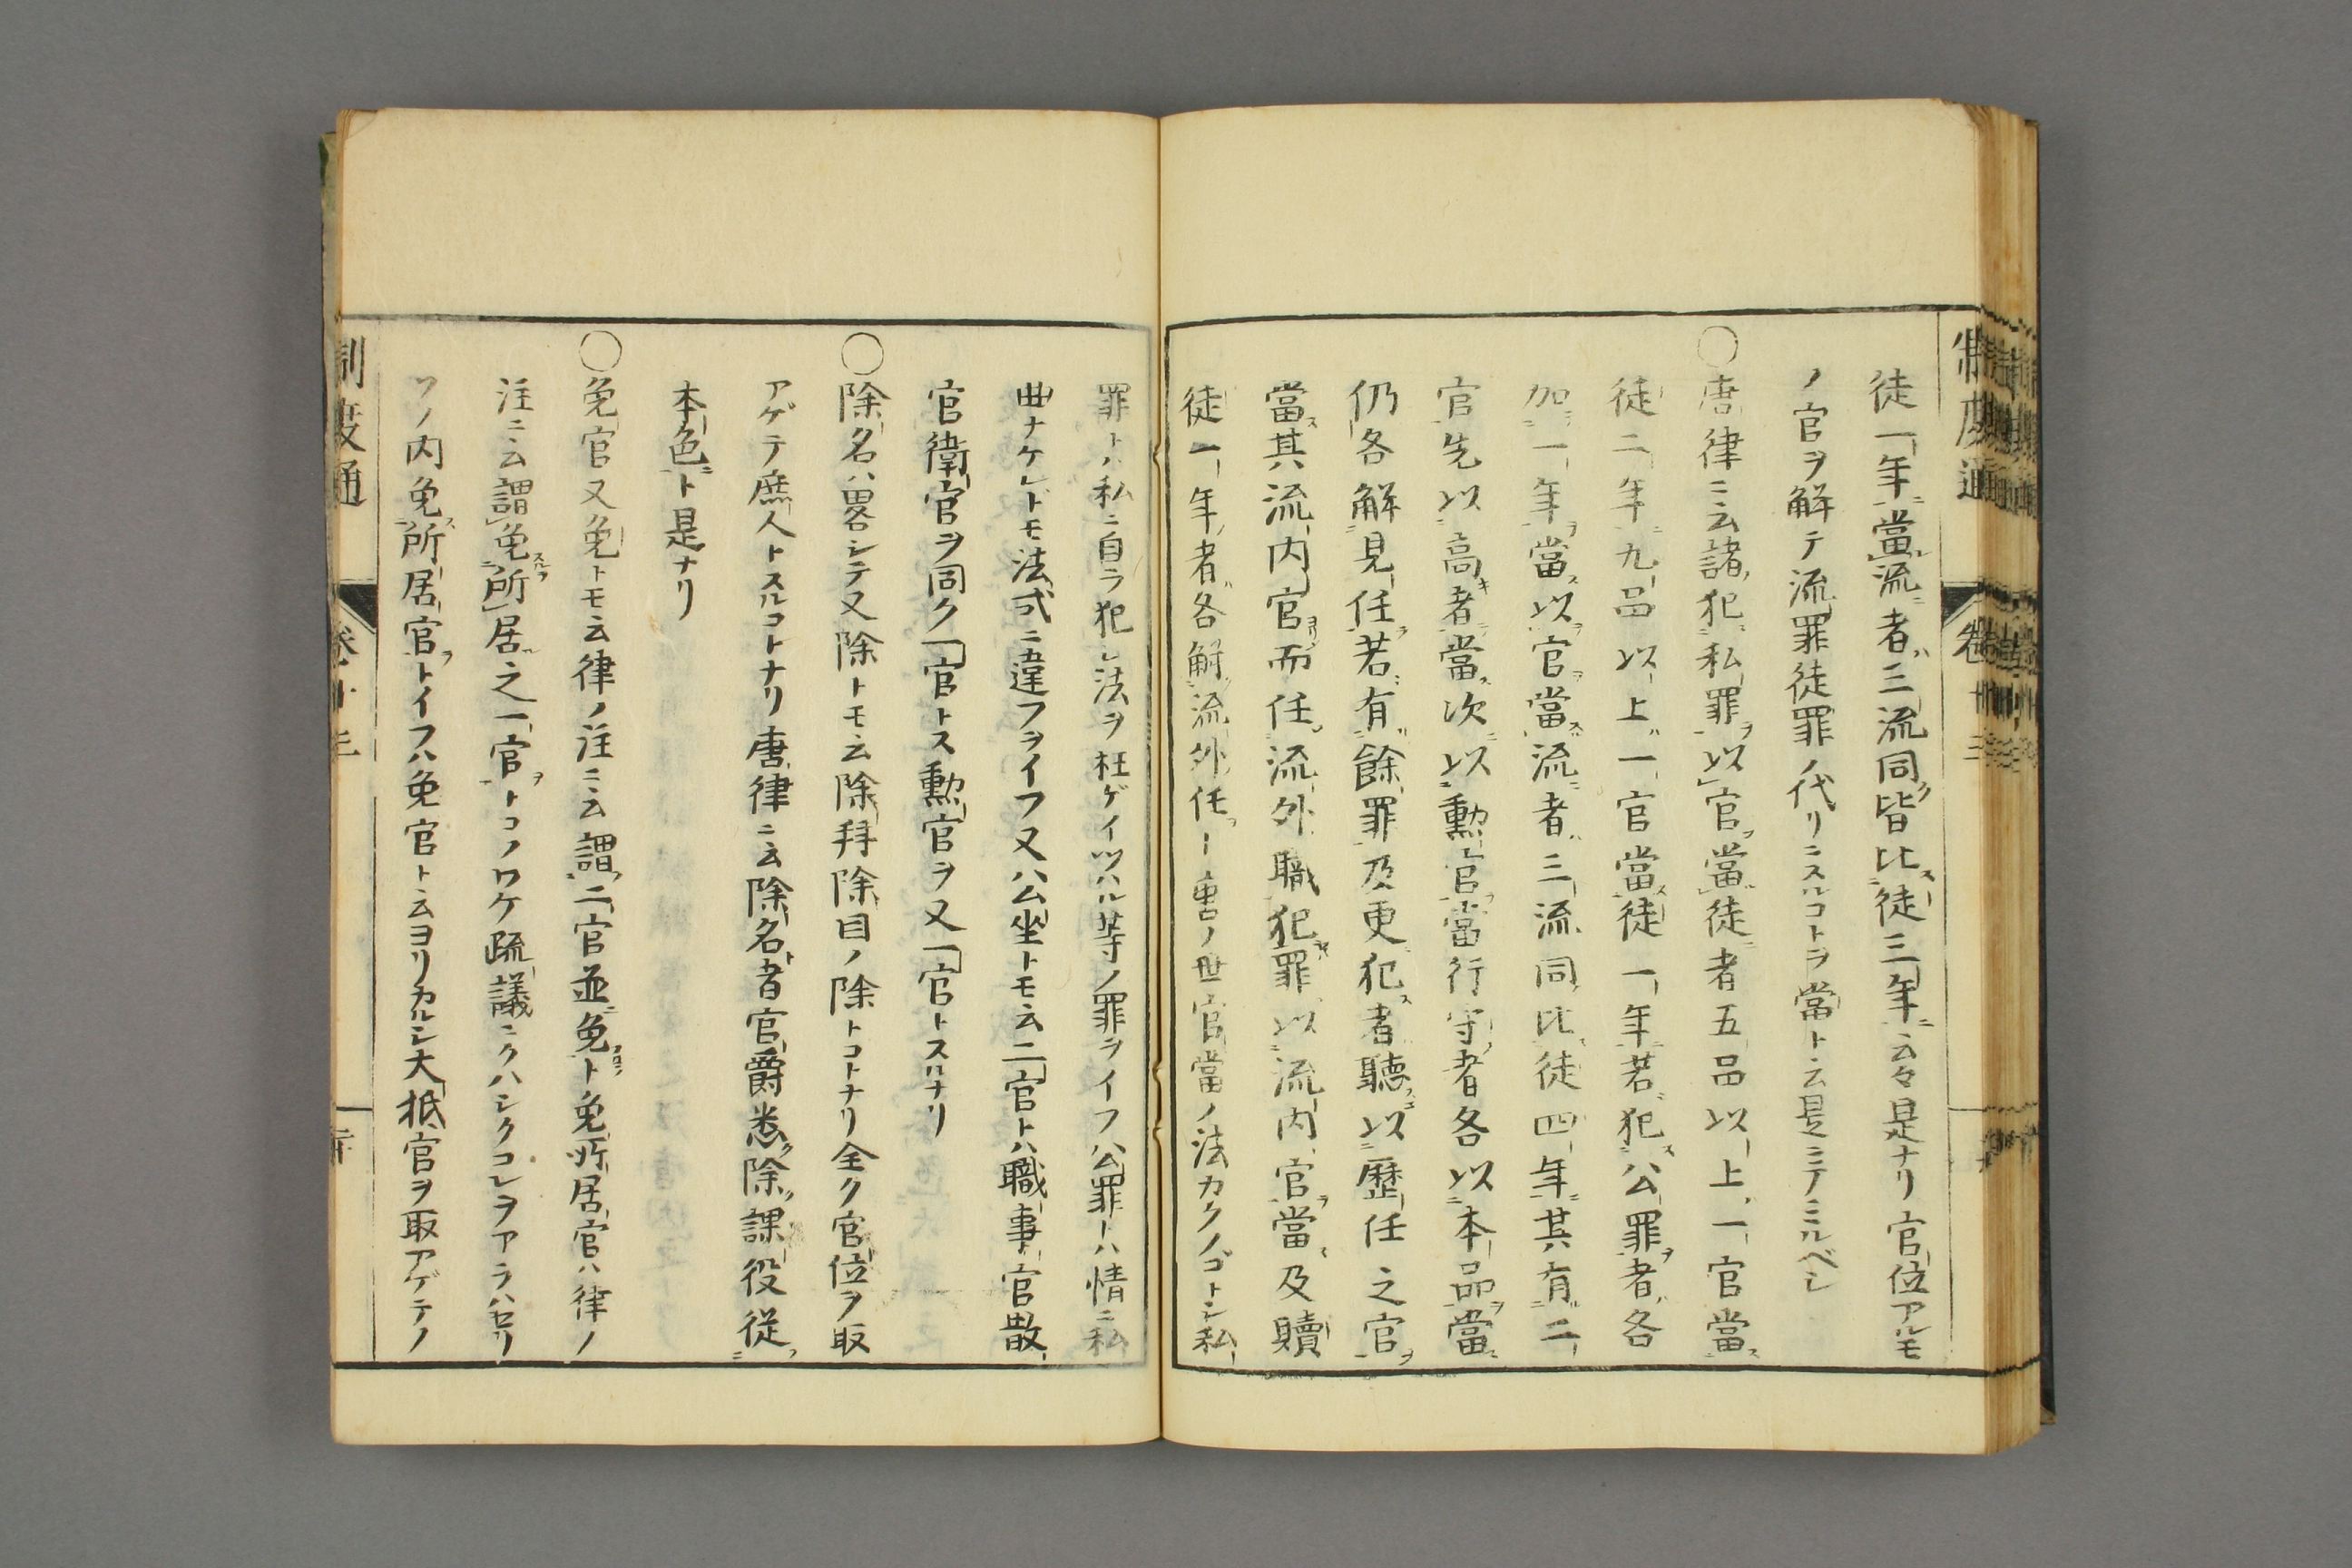 制度通
卷十三
徒一年當流者三流同皆比徒三年云々是ナリ官位アルモ
ノ官ヲ解テ流罪徒罪ノ代リニスルコトヲ當ト云是ニテミルベシ
〇唐律ニ云諸犯私罪以官當徒者五品以上一官當
徒二年九品以上一官當徒一年若犯公罪者各
加一年當以官當流者三流同比徒四年其有二
官先以高者當次以勲官當行守者各以本品當
仍各解見任若有餘罪及更犯者聽以歷任之官
當其流内官而任流外職犯罪以流内官當及贖
徒一年者各解流外任ー唐ノ世官當ノ法カクノゴトシ私
罪トハ私ニ自ラ犯シ法ヲ枉ゲイツハル等ノ罪ヲイフ公罪トハ情ニ私
曲ナケレドモ法式ニ違フヲイフ又ハ公坐トモ云二官トハ職事官散
官衛官ヲ同ク一官トス勲官ヲ又一官トスルナリ
〇除名ハ畧シテ又除トモ云除拜除目ノ除トコトナリ全ク官位ヲ取
アゲテ庶人トスルコトナリ唐律ニ云除名者官爵悉除課役從
本色ト是ナリ
〇免官又免トモ云律ノ注ニ云謂二官並免ト免所居官ハ律ノ
注ニ云謂免所居之一官トコノワケ疏議ニクハシクコレヲアラハセリ
ソノ内免所居官トイフハ免官ト云ヨリカルシ大抵官ヲ取アゲテノ
制度通
卷十三